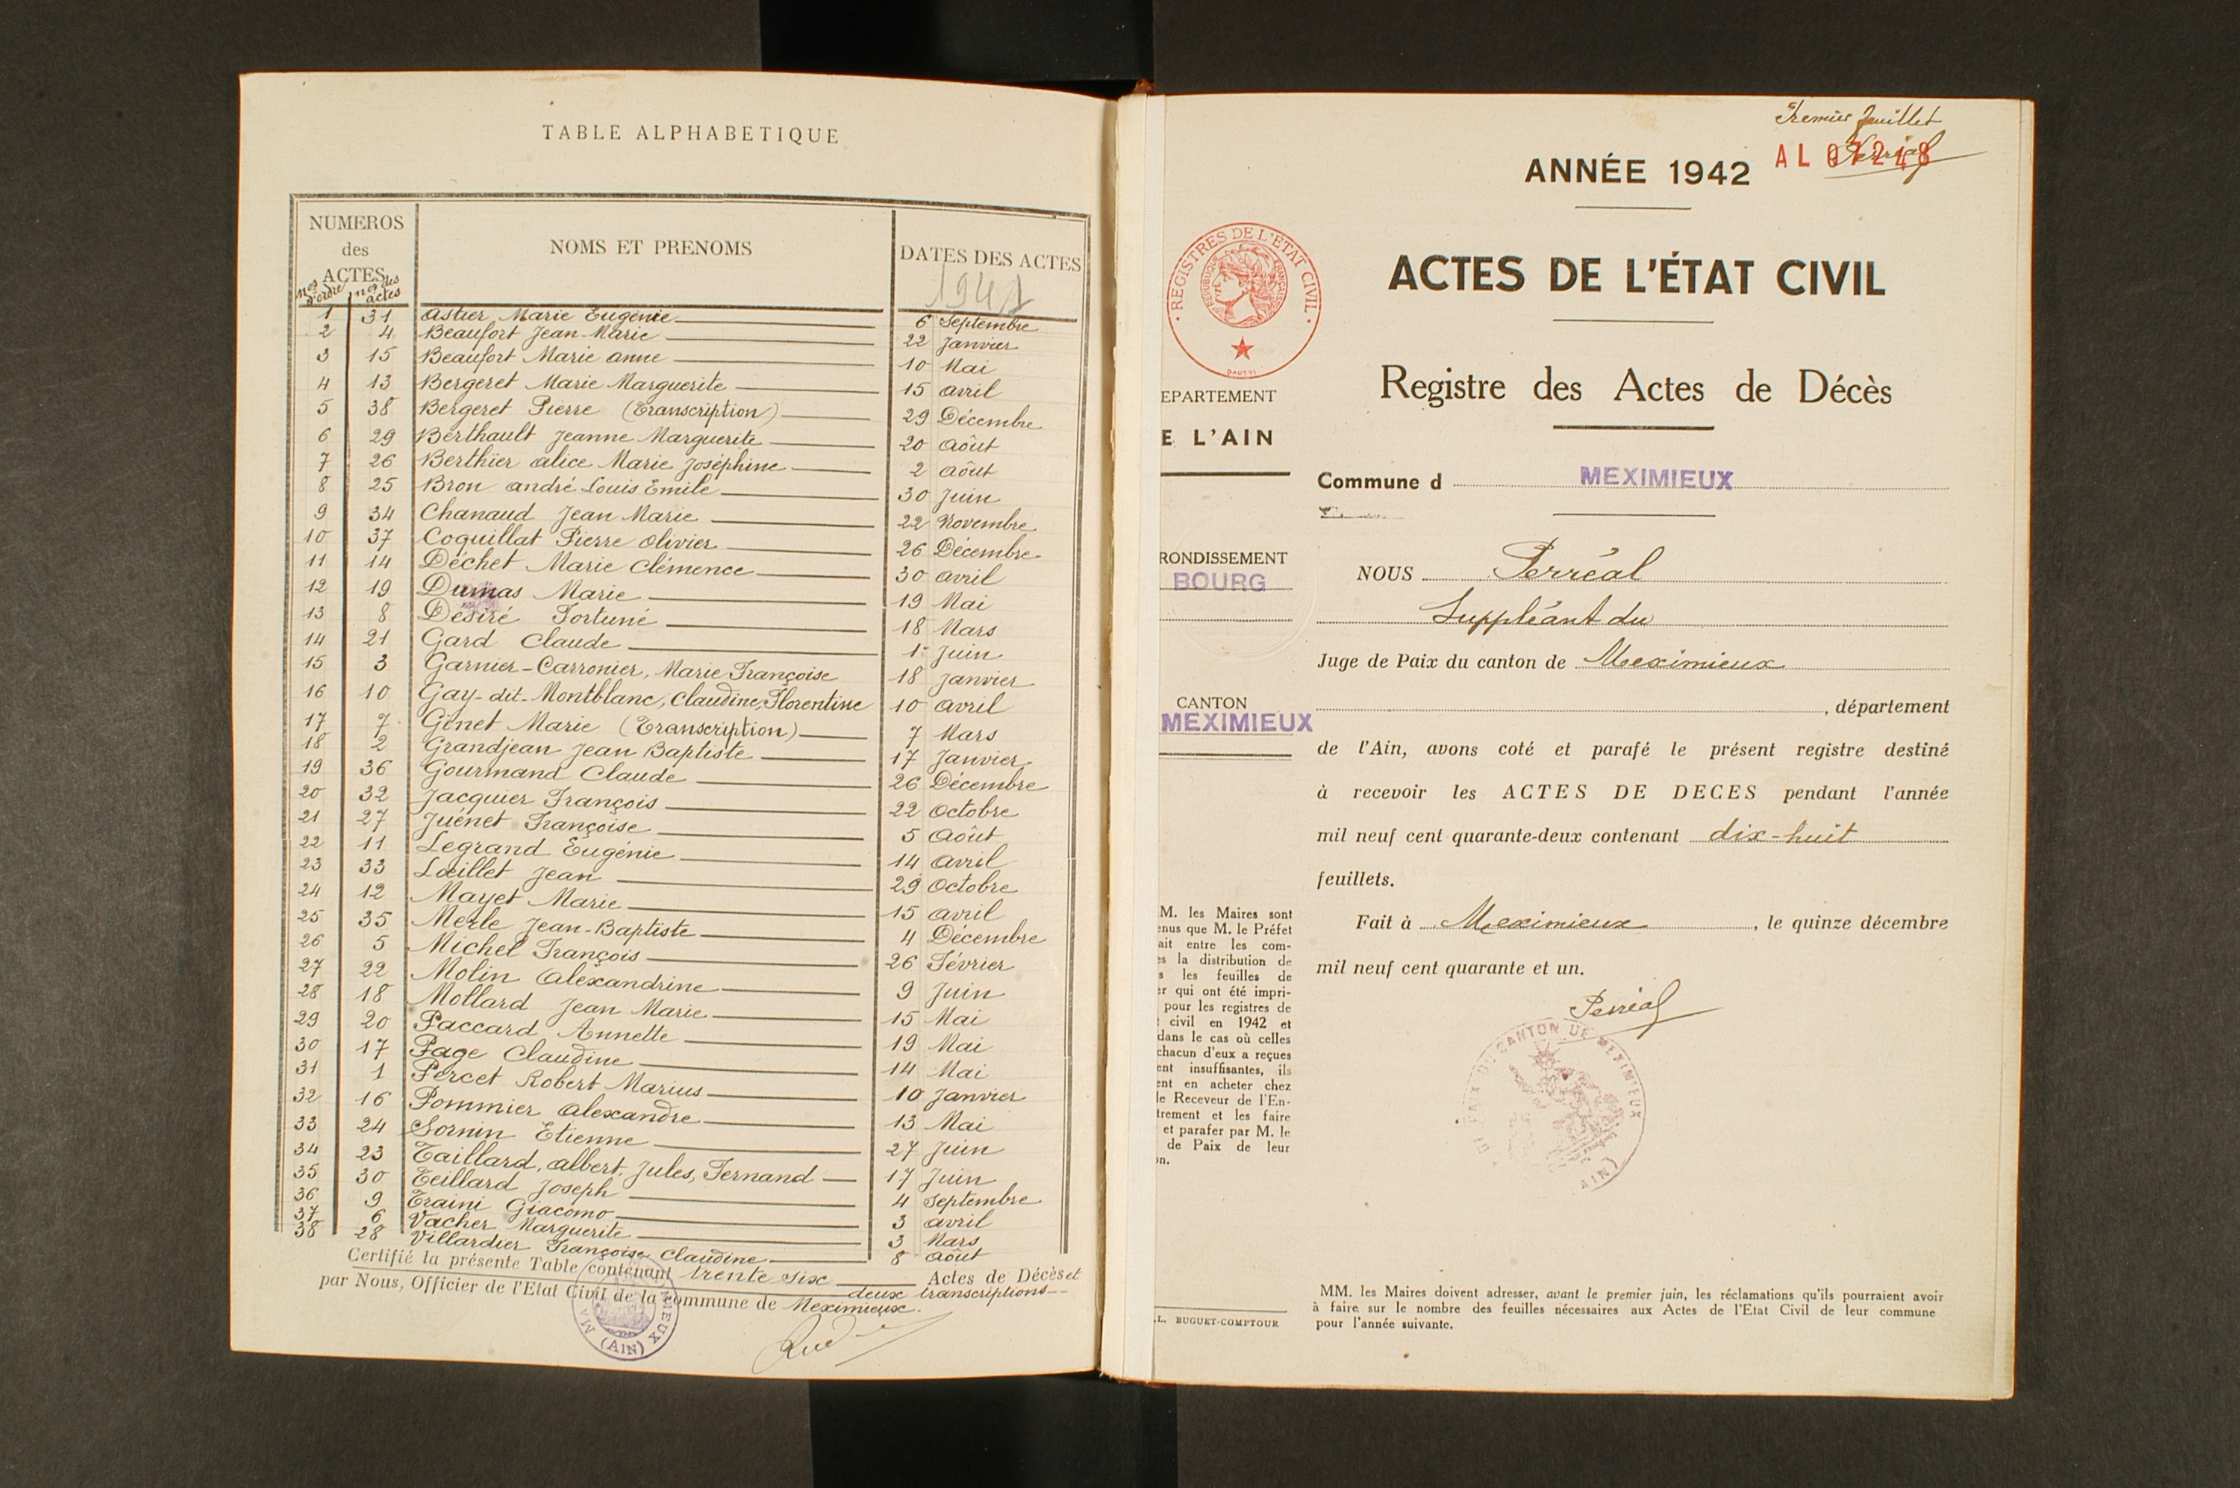 TABLE ALPHABETIQUE
NUMEROS
des
ACTES
NOMS ET PRENOMS
DATES DES ACTES
Nos d'ordre
nos des actes
1941
1 31 Astier Marie Eugénie 6 Septembre
2 4 Beaufort Jean-Marie 22 Janvier
3 15 Beaufort Marie Anne 10 Mai
4 13 Bergeret Marie Marguerite 15 Avril
5 38 Bergeret Pierre (Transcription) 29 Décembre
6 29 Berthault Jeanne Marguerite 20 Août
7 26 Berthier Alice Marie Joséphine 2 Août
8 25 Bron André Louis Emile 30 Juin
9 34 Chanaud Jean Marie 22 Novembre
10 37 Coquillat Pierre Olivier 26 Décembre
11 14 Déchet Marie Clémence 30 Avril
12 19 Dumas Marie 19 Mai
13 8 Désiré Fortuné 18 Mars
14 21 Gard Claude 1er Juin
15 3 Garnier-Carronier, Marie Françoise 18 Janvier
16 10 Gay-dit-Montblanc, Claudine, Florentine 10 Avril
17 7 Ginet Marie (Transcription) 7 Mars
18 2 Grandjean Jean Baptiste 17 Janvier
19 36 Gourmand Claude 26 Décembre
20 32 Jacquier François 22 Octobre
21 27 Juénet Françoise 5 Août
22 11 Legrand Eugénie 14 Avril
23 33 Lœillet Jean 29 Octobre
24 12 Mayet Marie 15 Avril
25 35 Merle Jean-Baptiste 4 Décembre
26 5 Michel François 26 Février
27 22 Molin Alexandrine 9 Juin
28 18 Mollard Jean Marie 15 Mai
29 20 Paccard Annette 19 Mai
30 17 Page Claudine 14 Mai
31 1 Percet Robert Marius 10 Janvier
32 16 Pommier Alexandre 13 Mai
33 24 Sornin Etienne 27 Juin
34 23 Taillard, Albert, Jules, Fernand 17 Juin
35 30 Teillard Joseph 4 Septembre
36 9 Traini Giacomo 3 Avril
37 6 Vacher Marguerite 3 Mars
38 28 Villardier Françoise Claudine 8 Août
Certifié la présente Table contenant trente six Actes de Décès et
deux transcriptions
par Nous, Officier de l'Etat Civil de la commune de Meximieux.
(AIN)
Premier feuillet
Perréal
AL 07248
ANNÉE 1942
ACTES DE L'ÉTAT CIVIL
Registre des Actes de Décès
REGISTRES DE L'ETAT CIVIL
REPUBLIQUE FRANÇAISE
EPARTEMENT
E L'AIN
RONDISSEMENT
BOURG
CANTON
MEXIMIEUX
M. les Maires sont
enus que M. le Préfet
ait entre les com-
es la distribution de
s les feuilles de
er qui ont été impri-
pour les registres de
civil en 1942 et
dans le cas où celles
chacun d'eux a reçues
ent insuffisantes, ils
ent en acheter chez
le Receveur de l'En-
trement et les faire
et parafer par M. le
de Paix de leur
on.
.L. BUGUET-COMPTOUR
Commune d MEXIMIEUX
NOUS Perréal
Suppléant du
Juge de Paix du canton de Meximieux
, département
de l'Ain, avons coté et parafé le présent registre destiné
à recevoir les ACTES DE DECES pendant l'année
mil neuf cent quarante-deux contenant dix-huit
feuillets.
Fait à Meximieux, le quinze décembre
mil neuf cent quarante et un.
Perréal
CANTON DE MEXIMIEUX
AIN
MM. les Maires doivent adresser, avant le premier juin, les réclamations qu'ils pourraient avoir
à faire sur le nombre des feuilles nécessaires aux Actes de l'Etat Civil de leur commune
pour l'année suivante.